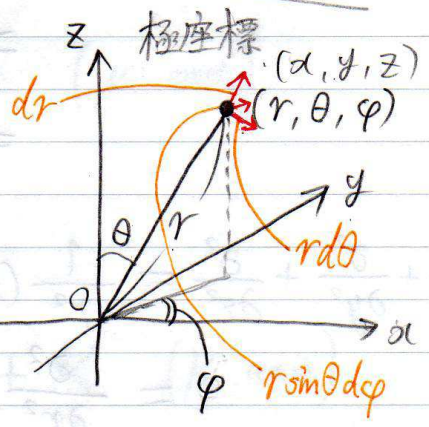 z 極座標
(x, y, z)
dr
(r, θ, φ)
y
θ
r
rdθ
O
x
φ
rsinθdφ